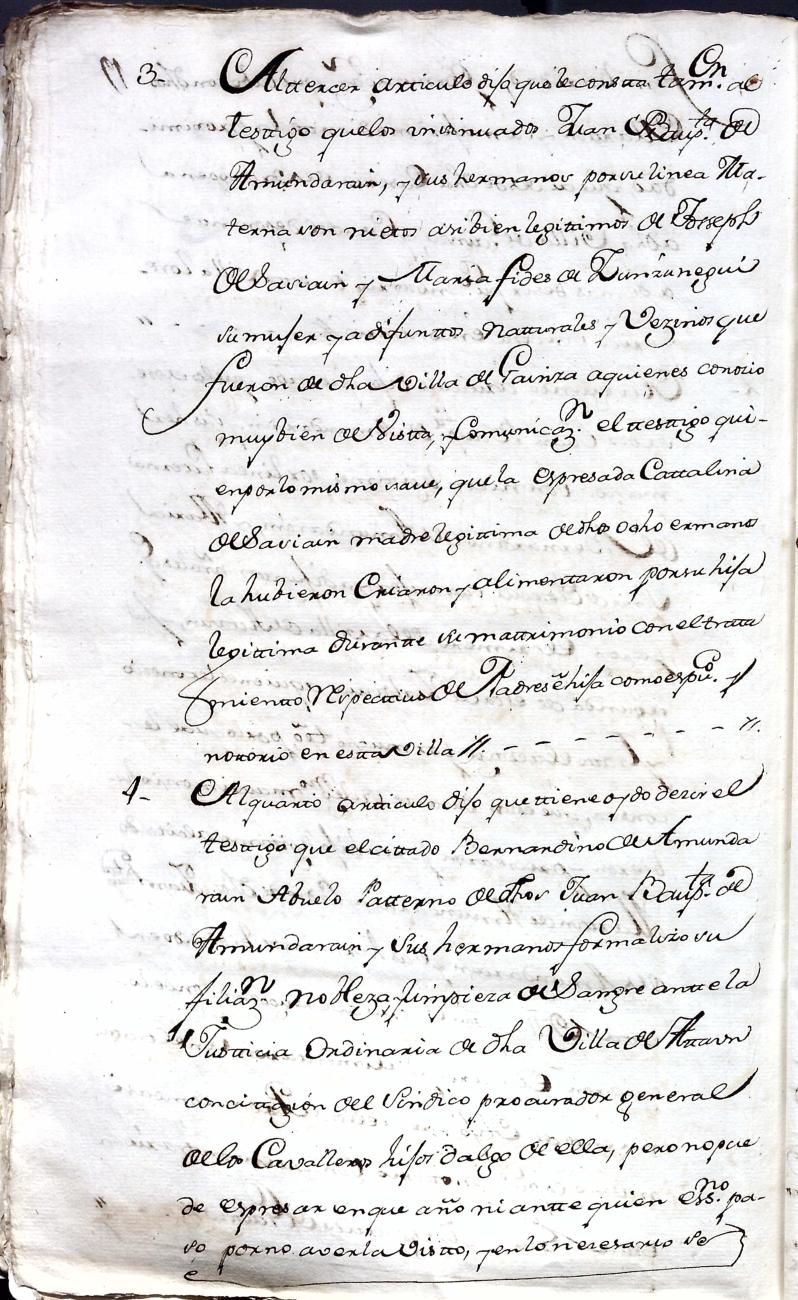 3- Al ttercer articulo dijo que le constta tamn. al
testtigo que los insinuados Juan Bauptta. de
Amundarain, y sus hermanos por su linea Ma-
terna son nietos asibien legittimos de Josseph
de Saviain y Maria fides de Zunzunegui
su mujer ya difunttos Natturales y Vezinos que
fueron de dha villa de Gainza a quienes conozio
muy bien de Vistta, y Comunicazn. el ttesttigo qui-
en por lo mismo save, que la espresada Cattalina
de Saviain madre legittima de dhos ocho ermanos
la hubieron Criaron y alimentaron por su hija
legittima durantte su mattrimonio con el tratta
mientto Respecttivo de Padres e hija como es puco. y
nottorio en estta villa //. - - - - - - - //.
4- Al quarto artticulo dijo que ttiene oydo dezir el
testtigo que el cittado Bernardino de Amunda
rain Abuelo Patterno de dhos Juan Bauptta. de
Amundarain y Sus hermanos formalizo su
filiazn. nobleza y limpieza de Sangre antte la
Justticia Ordinaria de dha Villa de Attaun
con cittazion del Sindico procurador general
de los Cavalleros hijos dalgo de ella, pero no pue
de espresar en que año ni antte quien essno. pa-
so por no averla Vistto, y en lo nezesario se